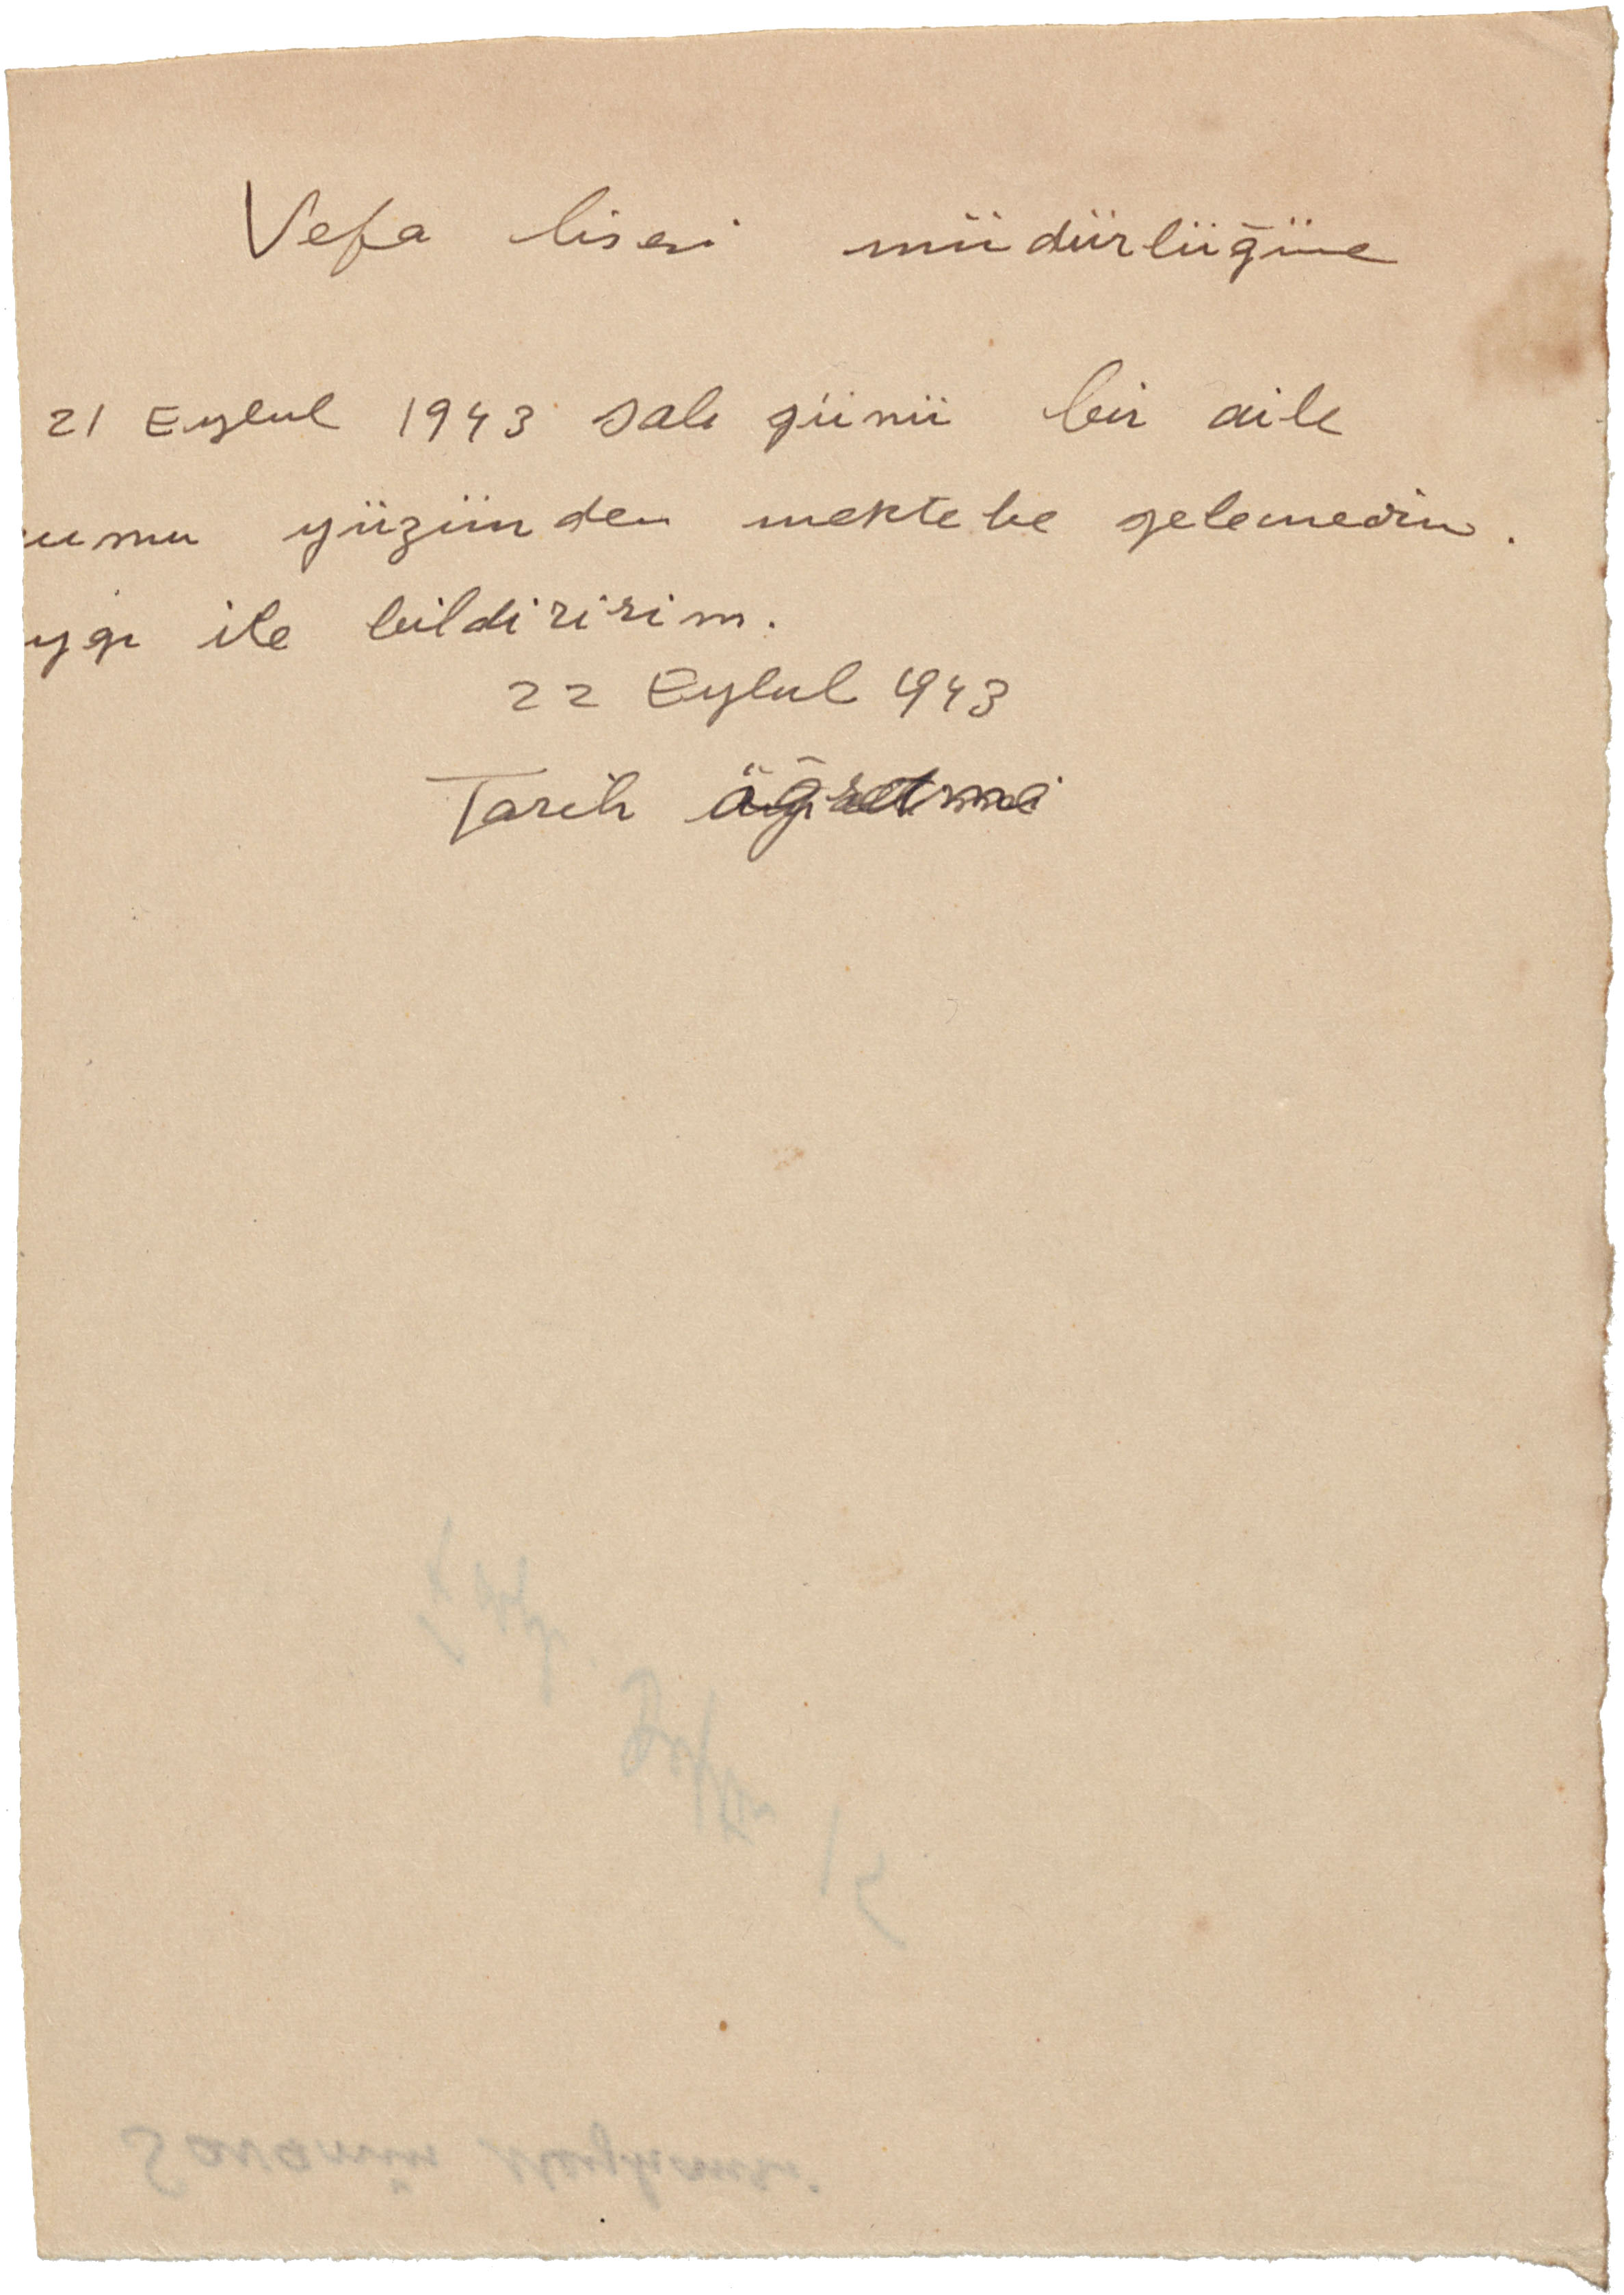 Vefa lisesi müdürlüğüne
21 Eylul 1943 salı günü bir aile
umu yüzünden mektebe gelemedim.
ygı ile bildiririm.
22 Eylul 943
Tarih öğretme